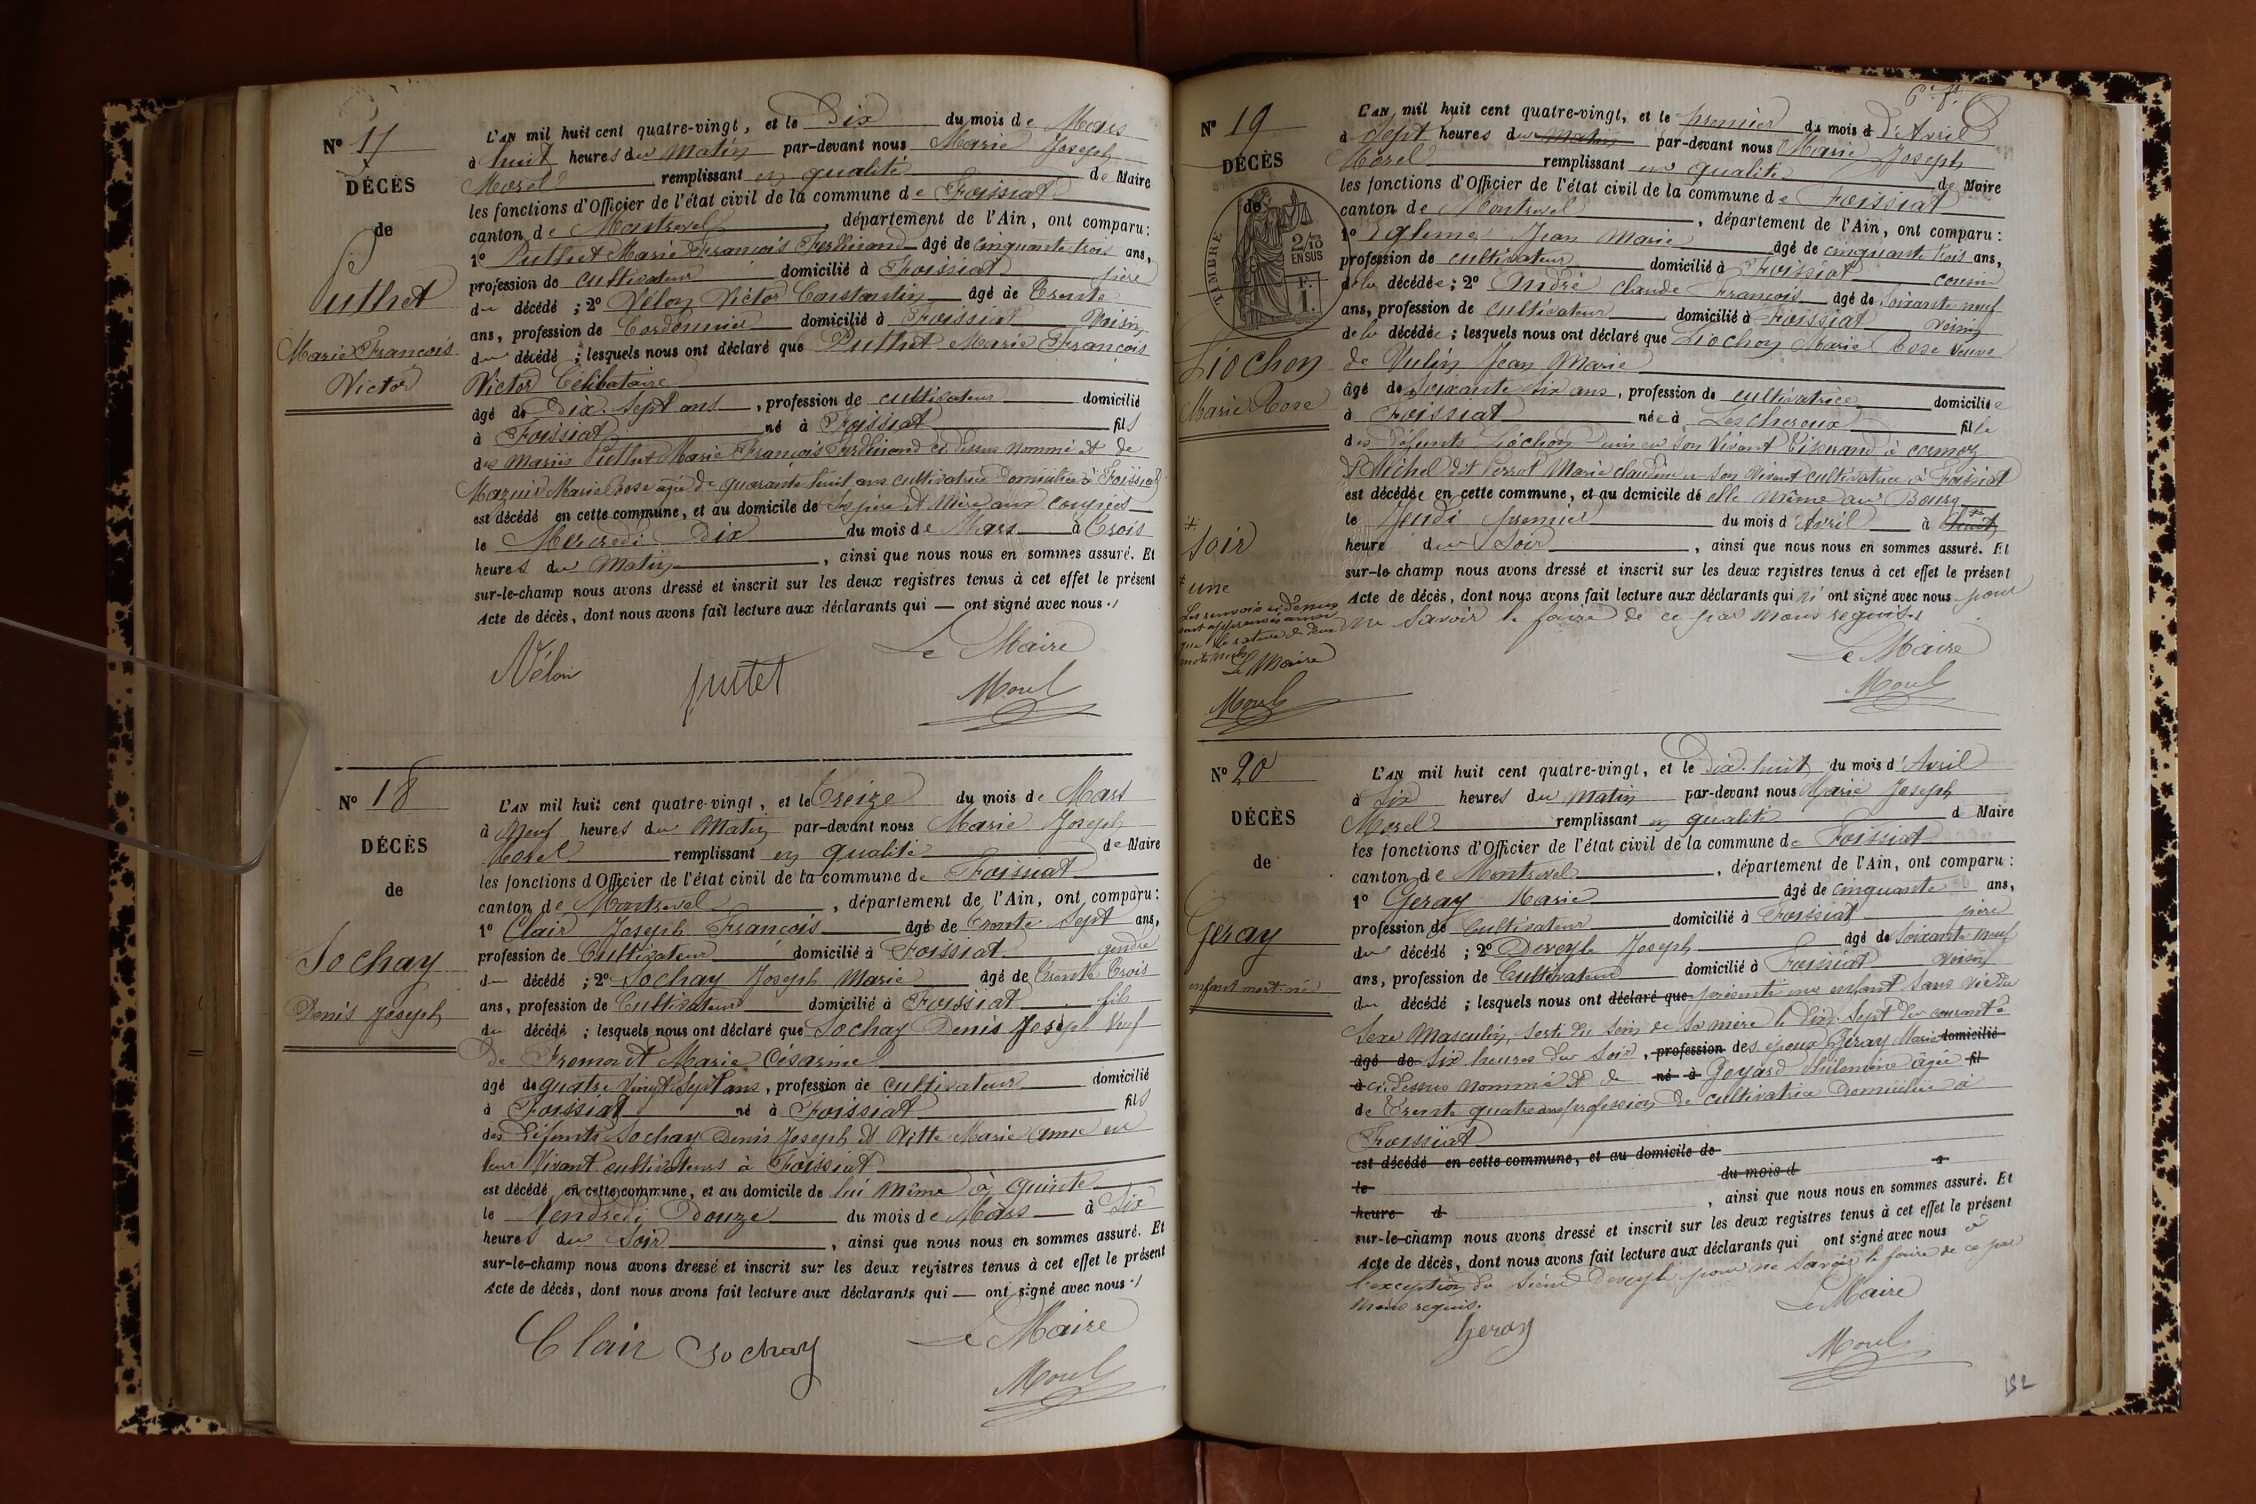 N° 17
DÉCÈS
de
Puthet
Marie François
Victor
L'AN mil huit cent quatre-vingt, et le Dix du mois de Mars
à huit heures du Matin par-devant nous Marie Joseph
Morel remplissant en qualité de Maire
les fonctions d'Officier de l'état civil de la commune de Foissiat
canton de Montrevel, département de l'Ain, ont comparu :
1° Puthet Marie François Ferdinand âgé de cinquante trois ans,
profession de cultivateur domicilié à Foissiat père
du décédé ; 2° Vélon Victor Constantin âgé de Trente
ans, profession de Cordonnier domicilié à Foissiat Voisin
du décédé ; lesquels nous ont déclaré que Puthet Marie François
Victor Célibataire
âgé de Dix Sept ans, profession de cultivateur domicilié
à Foissiat né à Foissiat fils
des Mariés Puthet Marie François Ferdinand ci dessus nommé et de
Marie Rose agée de quarante huit ans cultivatrice Domiciliée à Foissiat
est décédé en cette commune, et au domicile de ses père et Mère aux
le Mercredi Dix du mois de Mars à Trois
heures du Matin, ainsi que nous nous en sommes assuré. Et
sur-le-champ nous avons dressé et inscrit sur les deux registres tenus à cet effet le présent
Acte de décès, dont nous avons fait lecture aux déclarants qui — ont signé avec nous.
Le Maire
Vélon putet Morel
N° 18
DÉCÈS
de
Sochay
Denis Joseph
L'AN mil huit cent quatre-vingt, et le Treize du mois de Mars
à Neuf heures du Matin par-devant nous Marie Joseph
Morel remplissant en qualité de Maire
les fonctions d'Officier de l'état civil de la commune de Foissiat
canton de Montrevel, département de l'Ain, ont comparu :
1° Clair Joseph François âgé de Trente Sept ans,
profession de Cultivateur domicilié à Foissiat gendre
du décédé ; 2° Sochay Joseph Marie âgé de Trente Trois
ans, profession de Cultivateur domicilié à Foissiat fils
du décédé ; lesquels nous ont déclaré que Sochay Denis Joseph Veuf
De Fromont Marie Césarine
âgé de quatre Vingt Sept ans, profession de cultivateur domicilié
à Foissiat né à Foissiat fils
des Défunts Sochay Denis Joseph et Vitte Marie Anne en
leur Vivant cultivateurs à Foissiat
est décédé en cette commune, et au domicile de lui Même à
le Vendredi Douze du mois de Mars à Six
heures du Soir, ainsi que nous nous en sommes assuré. Et
sur-le-champ nous avons dressé et inscrit sur les deux registres tenus à cet effet le présent
Acte de décès, dont nous avons fait lecture aux déclarants qui — ont signé avec nous.
Le Maire
Clair Sochay Morel
N° 19
DÉCÈS
de
TIMBRE
2/10
EN SUS
F.
1.
Liochon
Marie Rose
soir
une
Le Maire
Morel
L'AN mil huit cent quatre-vingt, et le premier du mois d'Avril
à Sept heures du matin par-devant nous Marie Joseph
Morel remplissant en qualité de Maire
les fonctions d'Officier de l'état civil de la commune de Foissiat
canton de Montrevel, département de l'Ain, ont comparu :
1° Jean Marie âgé de cinquante trois ans,
profession de cultivateur domicilié à Foissiat cousin
de la décédée ; 2° André Claude François âgé de Soixante neuf
ans, profession de cultivateur domicilié à Foissiat Voisin
de la décédée ; lesquels nous ont déclaré que Liochon Marie Rose veuve
de Vulin Jean Marie
âgé de Soixante dix ans, profession de cultivatrice domiciliée
à Foissiat née à fille
des Défunts Liochon en son Vivant Tisserand à
et Michel dit Perrot Marie Claudine en son Vivant cultivatrice à Foissiat
est décédée en cette commune, et au domicile de elle même au Bourg
le Jeudi premier du mois d'Avril à huit
heure du Soir, ainsi que nous nous en sommes assuré. Et
sur-le champ nous avons dressé et inscrit sur les deux registres tenus à cet effet le présent
Acte de décès, dont nous avons fait lecture aux déclarants qui n'ont signé avec nous pour
ne Savoir le faire de ce par nous requis.
Le Maire
Morel
N° 20
DÉCÈS
de
Geray
enfant mort-né
L'AN mil huit cent quatre-vingt, et le Dix huit du mois d'Avril
à Six heures du matin par-devant nous Marie Joseph
Morel remplissant en qualité de Maire
les fonctions d'Officier de l'état civil de la commune de Foissiat
canton de Montrevel, département de l'Ain, ont comparu :
1° Geray Marie âgé de cinquante ans,
profession de Cultivateur domicilié à Foissiat père
du décédé ; 2° Joseph âgé de Soixante Neuf
ans, profession de Cultivateur domicilié à Foissiat Voisin
du décédé ; lesquels nous ont déclaré que présenté un enfant Sans Vie du
Sexe Masculin, Sorti du Sein de Sa mère le Dix Sept du courant à
âgé de Six heures du Soir, profession des époux Geray Marie domicilié
à ci dessus nommé et de né à Goyard Philomène âgée fil
de Trente quatre ans profession de cultivatrice Domiciliée à
Foissiat
est décédé en cette commune, et au domicile de
le du mois d à
heure d, ainsi que nous nous en sommes assuré. Et
sur-le-champ nous avons dressé et inscrit sur les deux registres tenus à cet effet le présent
Acte de décès, dont nous avons fait lecture aux déclarants qui ont signé avec nous à
l'exception du Sieur pour ne Savoir le faire de ce par
nous requis.
Le Maire
Geray Morel
152